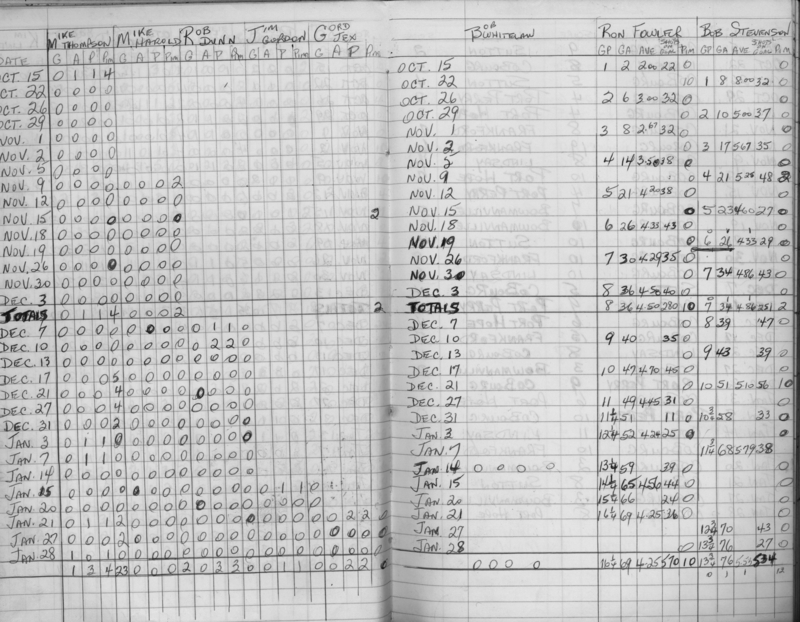 MIKE THOMPSON MIKE HAROLD ROB DUNN JIM GORDON GORD JEX
DATE G A P Pim G A P Pim G A P Pim G A P Pim G A P Pim
OCT. 15 0 1 1 4
OCT. 22 0 0 0 0
OCT. 26 0 0 0 0
OCT. 29 0 0 0 0
NOV. 1 0 0 0 0
NOV. 2 0 0 0 0
NOV. 5 0 0 0 0
NOV. 9 0 0 0 0 0 0 0 2
NOV. 12 0 0 0 0 0 0 0 0
NOV. 15 0 0 0 0 0 0 0 0 2
NOV. 18 0 0 0 0 0 0 0 0
NOV. 19 0 0 0 0 0 0 0 0
NOV. 26 0 0 0 0 0 0 0 0
NOV. 30 0 0 0 0 0 0 0 0
DEC. 3 0 0 0 0 0 0 0 0
TOTALS 0 1 1 4 0 0 0 2 2
DEC. 7 0 0 0 0 0 0 0 0 0 1 1 0
DEC. 10 0 0 0 0 0 0 0 0 0 2 2 0
DEC. 13 0 0 0 0 0 0 0 0 0 0 0 0
DEC. 17 0 0 0 5 0 0 0 0 0 0 0 0
DEC. 21 0 0 0 4 0 0 0 0 0 0 0 0
DEC. 27 0 0 0 4 0 0 0 0 0 0 0 0
DEC. 31 0 0 0 2 0 0 0 0 0 0 0 0
JAN. 3 0 1 1 0 0 0 0 0 0 0 0 0
JAN. 7 0 1 1 0 0 0 0 0 0 0 0 0
JAN. 14 0 0 0 0 0 0 0 0 0 0 0 0
JAN. 15 0 0 0 0 0 0 0 0 0 0 0 0 0 1 1 0
JAN. 20 0 0 0 0 0 0 0 0 0 0 0 0 0 0 0
JAN. 21 0 1 1 2 0 0 0 0 0 0 0 0 0 0 0 0 0 2 2 0
JAN. 27 0 0 0 2 0 0 0 0 0 0 0 0 0 0 0 0 0 0 0 0
JAN. 28 1 0 1 0 0 0 0 0 0 0 0 0 0 0 0 0 0 0 0 0
1 3 4 23 0 0 0 2 0 3 3 0 0 1 1 0 0 2 2 0
BOB WHITELAW RON FOWLER BOB STEVENSON
GP GA AVE Pim GP GA AVE Pim
OCT. 15 1 2 2.00 22 0
OCT. 22 0 1 8 8.00 32 0
OCT. 26 2 6 3.00 32 0
OCT. 29 0 2 10 5.00 37 0
NOV. 1 3 8 2.67 32 0
NOV. 2 0 3 17 5.67 35 0
NOV. 5 4 14 3.50 38 0
NOV. 9 0 4 21 5.25 48 2
NOV. 12 5 21 4.20 38 0
NOV. 15 0 5 23 4.60 27 0
NOV. 18 6 26 4.33 43 0
NOV. 19 0 6 26 4.33 29 0
NOV. 26 7 30 4.29 35 0
NOV. 30 0 7 34 4.86 43 0
DEC. 3 8 36 4.50 40 0
TOTALS 8 36 4.50 280 10 7 34 4.86 251 2
DEC. 7 8 39 47 0
DEC. 10 9 40 35 0
DEC. 13 9 43 39 0
DEC. 17 10 47 4.70 45 0
DEC. 21 10 51 5.10 56 10
DEC. 27 11 49 4.45 31 0
DEC. 31 11¼ 51 11 0 10¾ 58 33 0
JAN. 3 12¼ 52 4.24 25 0
JAN. 7 11¾ 68 5.79 38
JAN. 14 0 0 0 0 13¼ 59 39 0
JAN. 15 14¼ 65 4.56 44 0
JAN. 20 15¼ 66 24 0
JAN. 21 16¼ 69 4.25 36 0
JAN. 27 12¾ 70 43 0
JAN. 28 0 13¾ 76 27 0
0 0 0 0 16¼ 69 4.25 570 10 13¾ 76 534
0 1 1 12